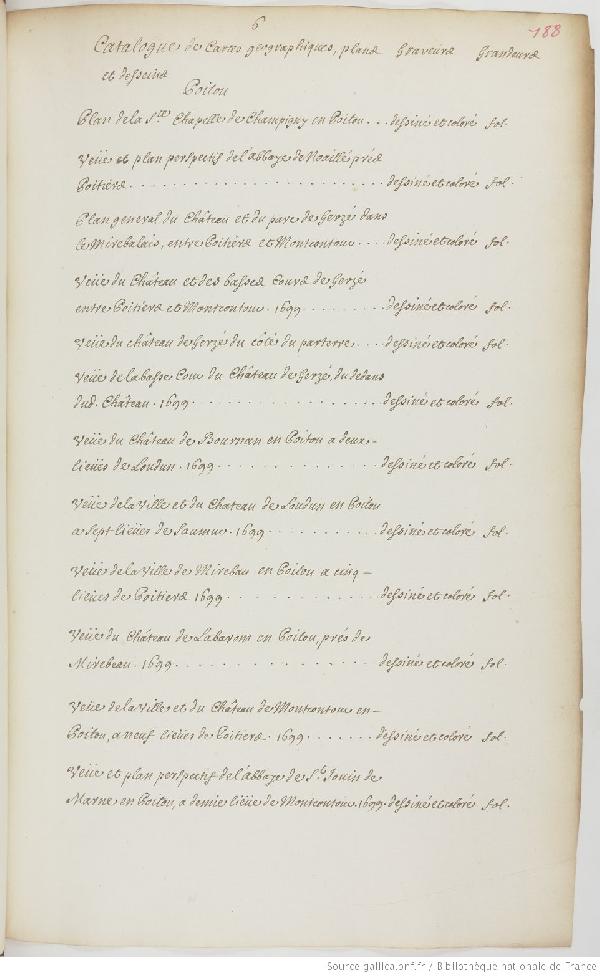 6
188
Catalogue de Cartes geographiques, plans Graveurs Grandeurs
et desseins
Poitou
Plan de la Ste. Chapelle de Champigny en Poitou ... dessiné et coloré fol.
Veüe et plan perspectif de l'abbaye de Noaillé prés
Poitiers. dessiné et coloré fol.
Plan general du Château et du parc de Gerzé dans
le Mirebalais, entre Poitiers et Montcontour .... dessiné et coloré fol.
Veüe du Château et des basses Cours de Gerzé
entre Poitiers et Montcontour. 1699 dessiné et coloré fol.
Veüe du château de Gerzé du côté du parterre dessiné et coloré fol.
Veüe de la basse Cour du Château de Gerzé du dedans
dud. Château. 1699 dessiné et coloré fol.
Veüe du Château de Bournan en Poitou a deux-
lieües de Loudun. 1699 dessiné et coloré fol.
Veüe de la Ville et du Chateau de Loudun en Poitou
a sept lieües de Saumur. 1699 dessiné et coloré fol.
Veüe de la Ville de Mirebau en Poitou a cinq-
lieües de Poitiers 1699 dessiné et coloré fol.
Veüe du Château de Labarom en Poitou, prés de
Mirebeau. 1699 dessiné et coloré fol.
Veüe de la Ville et du Château de Montcontour en-
Poitou, a neuf lieües de Poitiers. 1699 dessiné et coloré fol.
Veüe et plan perspectif de l'abbaye de St. Jouin de
Marne en Poitou, a demie lieüe de Montcontour. 1699. dessiné et coloré fol.
Source gallica.bnf.fr / Bibliothèque nationale de France